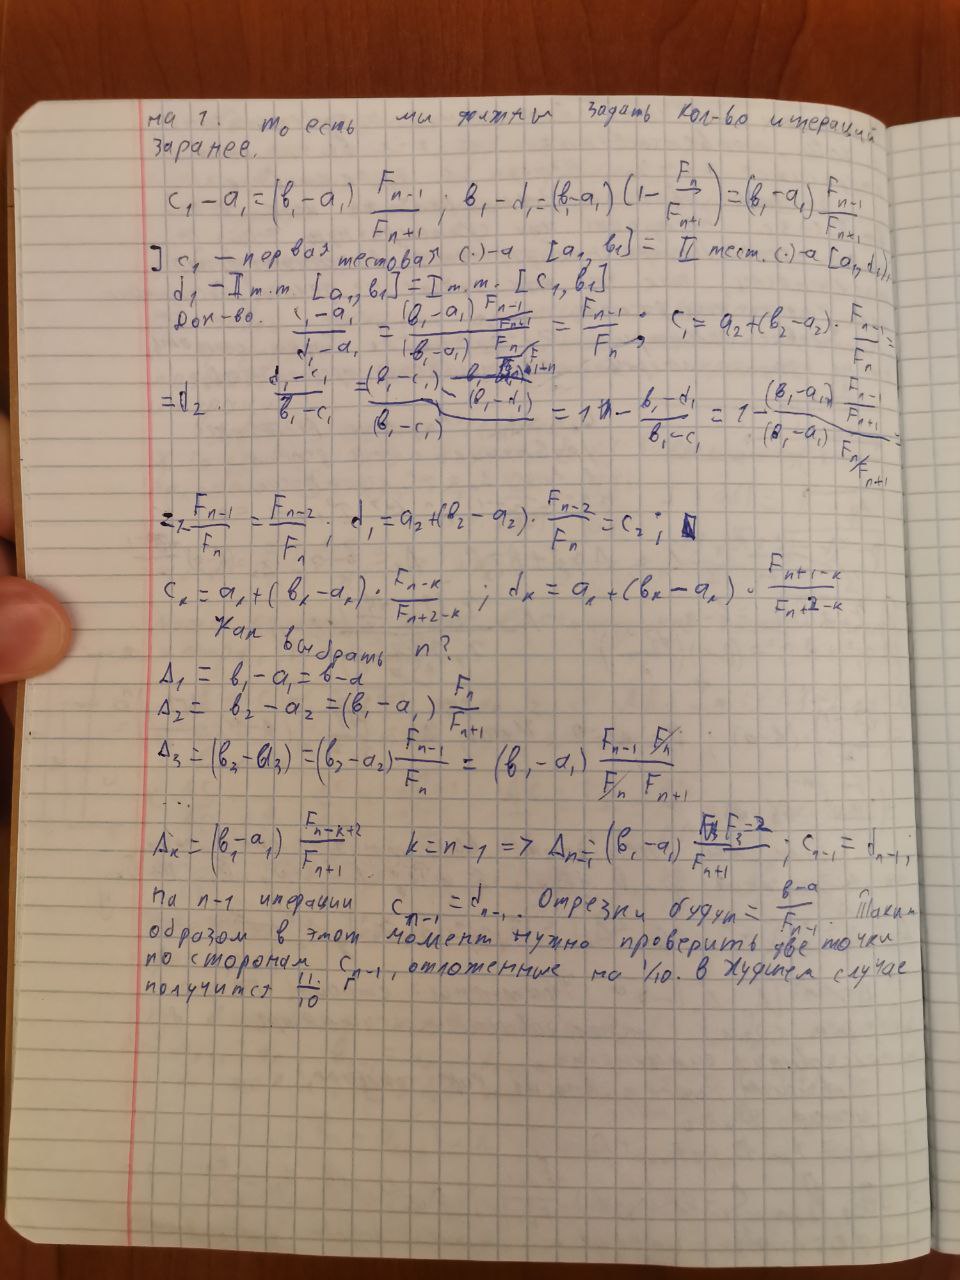 на 1. то есть ми должны задать кол-во итераций
заранее.
c₁ - a₁ = (b₁ - a₁) F_{n-1}/F_{n+1} ; b₁ - d₁ = (b₁ - a₁) (1 - F_n/F_{n+1}) = (b₁ - a₁) F_{n-1}/F_{n+1}
] c₁ - первая тестовая (·)-а [a₁, b₁] = II тест. (·)-а [a₁, d₁],
d₁ - II т.т. [a₁, b₁] = I т.т. [c₁, b₁]
Док-во. (c₁ - a₁)/(d₁ - a₁) = ((b₁ - a₁) F_{n-1}/F_{n+1})/((b₁ - a₁) F_n/F_{n+1}) = F_{n-1}/F_n ; c₁ = a₂ + (b₂ - a₂) · F_{n-1}/F_n =
= d₂. (d₁ - c₁)/(b₁ - c₁) = ((b₁ - c₁) - (b₁ - d₁))/(b₁ - c₁) = 1 - (b₁ - d₁)/(b₁ - c₁) = 1 - ((b₁ - a₁) F_{n-1}/F_{n+1})/((b₁ - a₁) F_n/F_{n+1}) =
= 1 - F_{n-1}/F_n = F_{n-2}/F_n ; d₁ = a₂ + (b₂ - a₂) · F_{n-2}/F_n = c₂ ;
c_k = a_k + (b_k - a_k) · F_{n-k}/F_{n+2-k} ; d_k = a_k + (b_k - a_k) · F_{n+1-k}/F_{n+2-k}
Как выбрать n?
Δ₁ = b₁ - a₁ = b - a
Δ₂ = b₂ - a₂ = (b₁ - a₁) F_n/F_{n+1}
Δ₃ = (b₃ - a₃) = (b₂ - a₂) F_{n-1}/F_n = (b₁ - a₁) F_{n-1} F_n/F_n F_{n+1}
...
Δ_k = (b₁ - a₁) F_{n-k+2}/F_{n+1} k = n-1 => Δ_{n-1} = (b₁ - a₁) F₃=2/F_{n+1} ; c_{n-1} = d_{n-1} ;
на n-1 итерации c_{n-1} = d_{n-1}. Отрезки будут = b-a/F_{n-1}. Таким
образом в этот момент нужно проверить две точки
по сторонам c_{n-1}, отложенные на 1/10. в худшем случае
получится 11/10